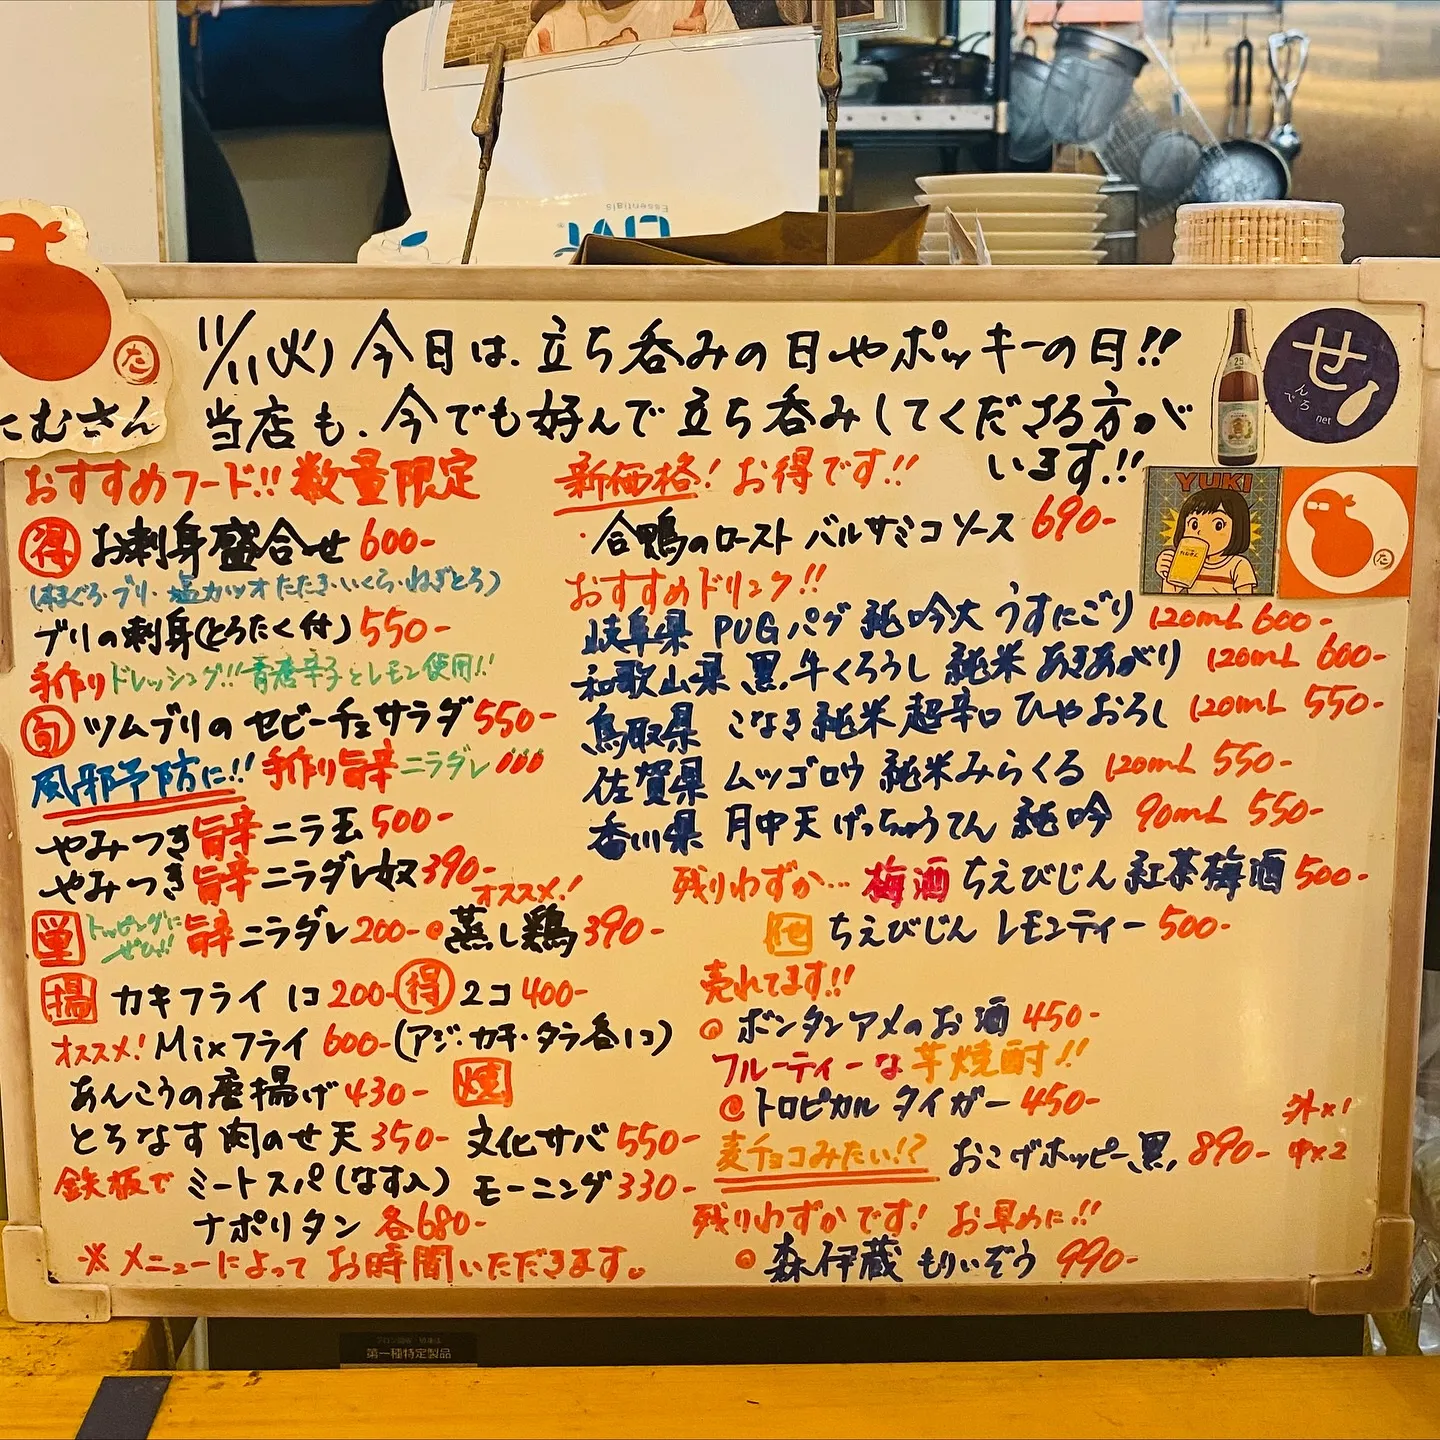 LIVE
Essentials
たむさん
11/11(火) 今日は、立ち呑みの日やポッキーの日!!
当店も、今でも好んで立ち呑みしてくださる方が
います!!
せ
んべろ
net
YUKI
おすすめフード!! 数量限定
得 お刺身盛合せ 600-
(本まぐろ・ブリ・塩カツオたたき・いくら・ねぎとろ)
ブリの刺身(とろたく付) 550-
手作りドレッシング!! 青唐辛子とレモン使用!!
旬 ツムブリのセビーチェサラダ 550-
風邪予防に!! 手作り旨辛ニラダレ
やみつき旨辛ニラ玉 500-
やみつき旨辛ニラダレ奴 390-
オススメ!
単 トッピングにぜひ!! 旨辛ニラダレ 200- 蒸し鶏 390-
揚 カキフライ 1コ 200- 得 2コ 400-
オススメ! Mixフライ 600- (アジ・カキ・タラ各1コ)
あんこうの唐揚げ 430-
とろなす肉のせ天 350-
焼
文化サバ 550-
鉄板で ミートスパ(なす入) モーニング 330-
ナポリタン 各680-
※メニューによってお時間いただきます。
新価格! お得です!!
・合鴨のロースト バルサミコソース 690-
おすすめドリンク!!
岐阜県 PUG パグ 純吟大 うすにごり 120mL 600-
和歌山県 黒牛くろうし 純米 あきあがり 120mL 600-
鳥取県 こなき純米 超辛口 ひやおろし 120mL 550-
佐賀県 ムツゴロウ 純米みらくる 120mL 550-
香川県 月中天 げっちゅうてん 純吟 90mL 550-
残りわずか… 梅酒 ちえびじん 紅茶梅酒 500-
他 ちえびじん レモンティー 500-
売れてます!!
ボンタンアメのお酒 450-
フルーティーな芋焼酎!!
トロピカルタイガー 450-
麦チョコみたい!? おこげホッピー黒 890- 外×1
中×2
残りわずかです! お早めに!!
森伊蔵 もりいぞう 990-
第一種特定製品